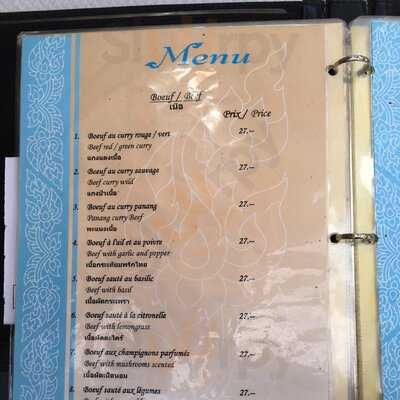 Menu
Boeuf / Beef
เนื้อ
Prix / Price
1. Boeuf au curry rouge / vert 27.--
Beef red / green curry
แกงแดงเนื้อ
2. Boeuf au curry sauvage 27.--
Beef curry wild
แกงป่าเนื้อ
3. Boeuf au curry panang 27.--
Panang curry Beef
พะแนงเนื้อ
4. Boeuf à l'ail et au poivre 27.--
Beef with garlic and pepper
เนื้อกระเทียมพริกไทย
5. Boeuf sauté au basilic 27.--
Beef with basil
เนื้อผัดกระเพรา
6. Boeuf sauté à la citronelle 27.--
Beef with lemongrass
เนื้อผัดตะไคร้
7. Boeuf aux champignons parfumés 27.--
Beef with mushrooms scented
เนื้อผัดเห็ดหอม
8. Boeuf sauté aux légumes 27.--